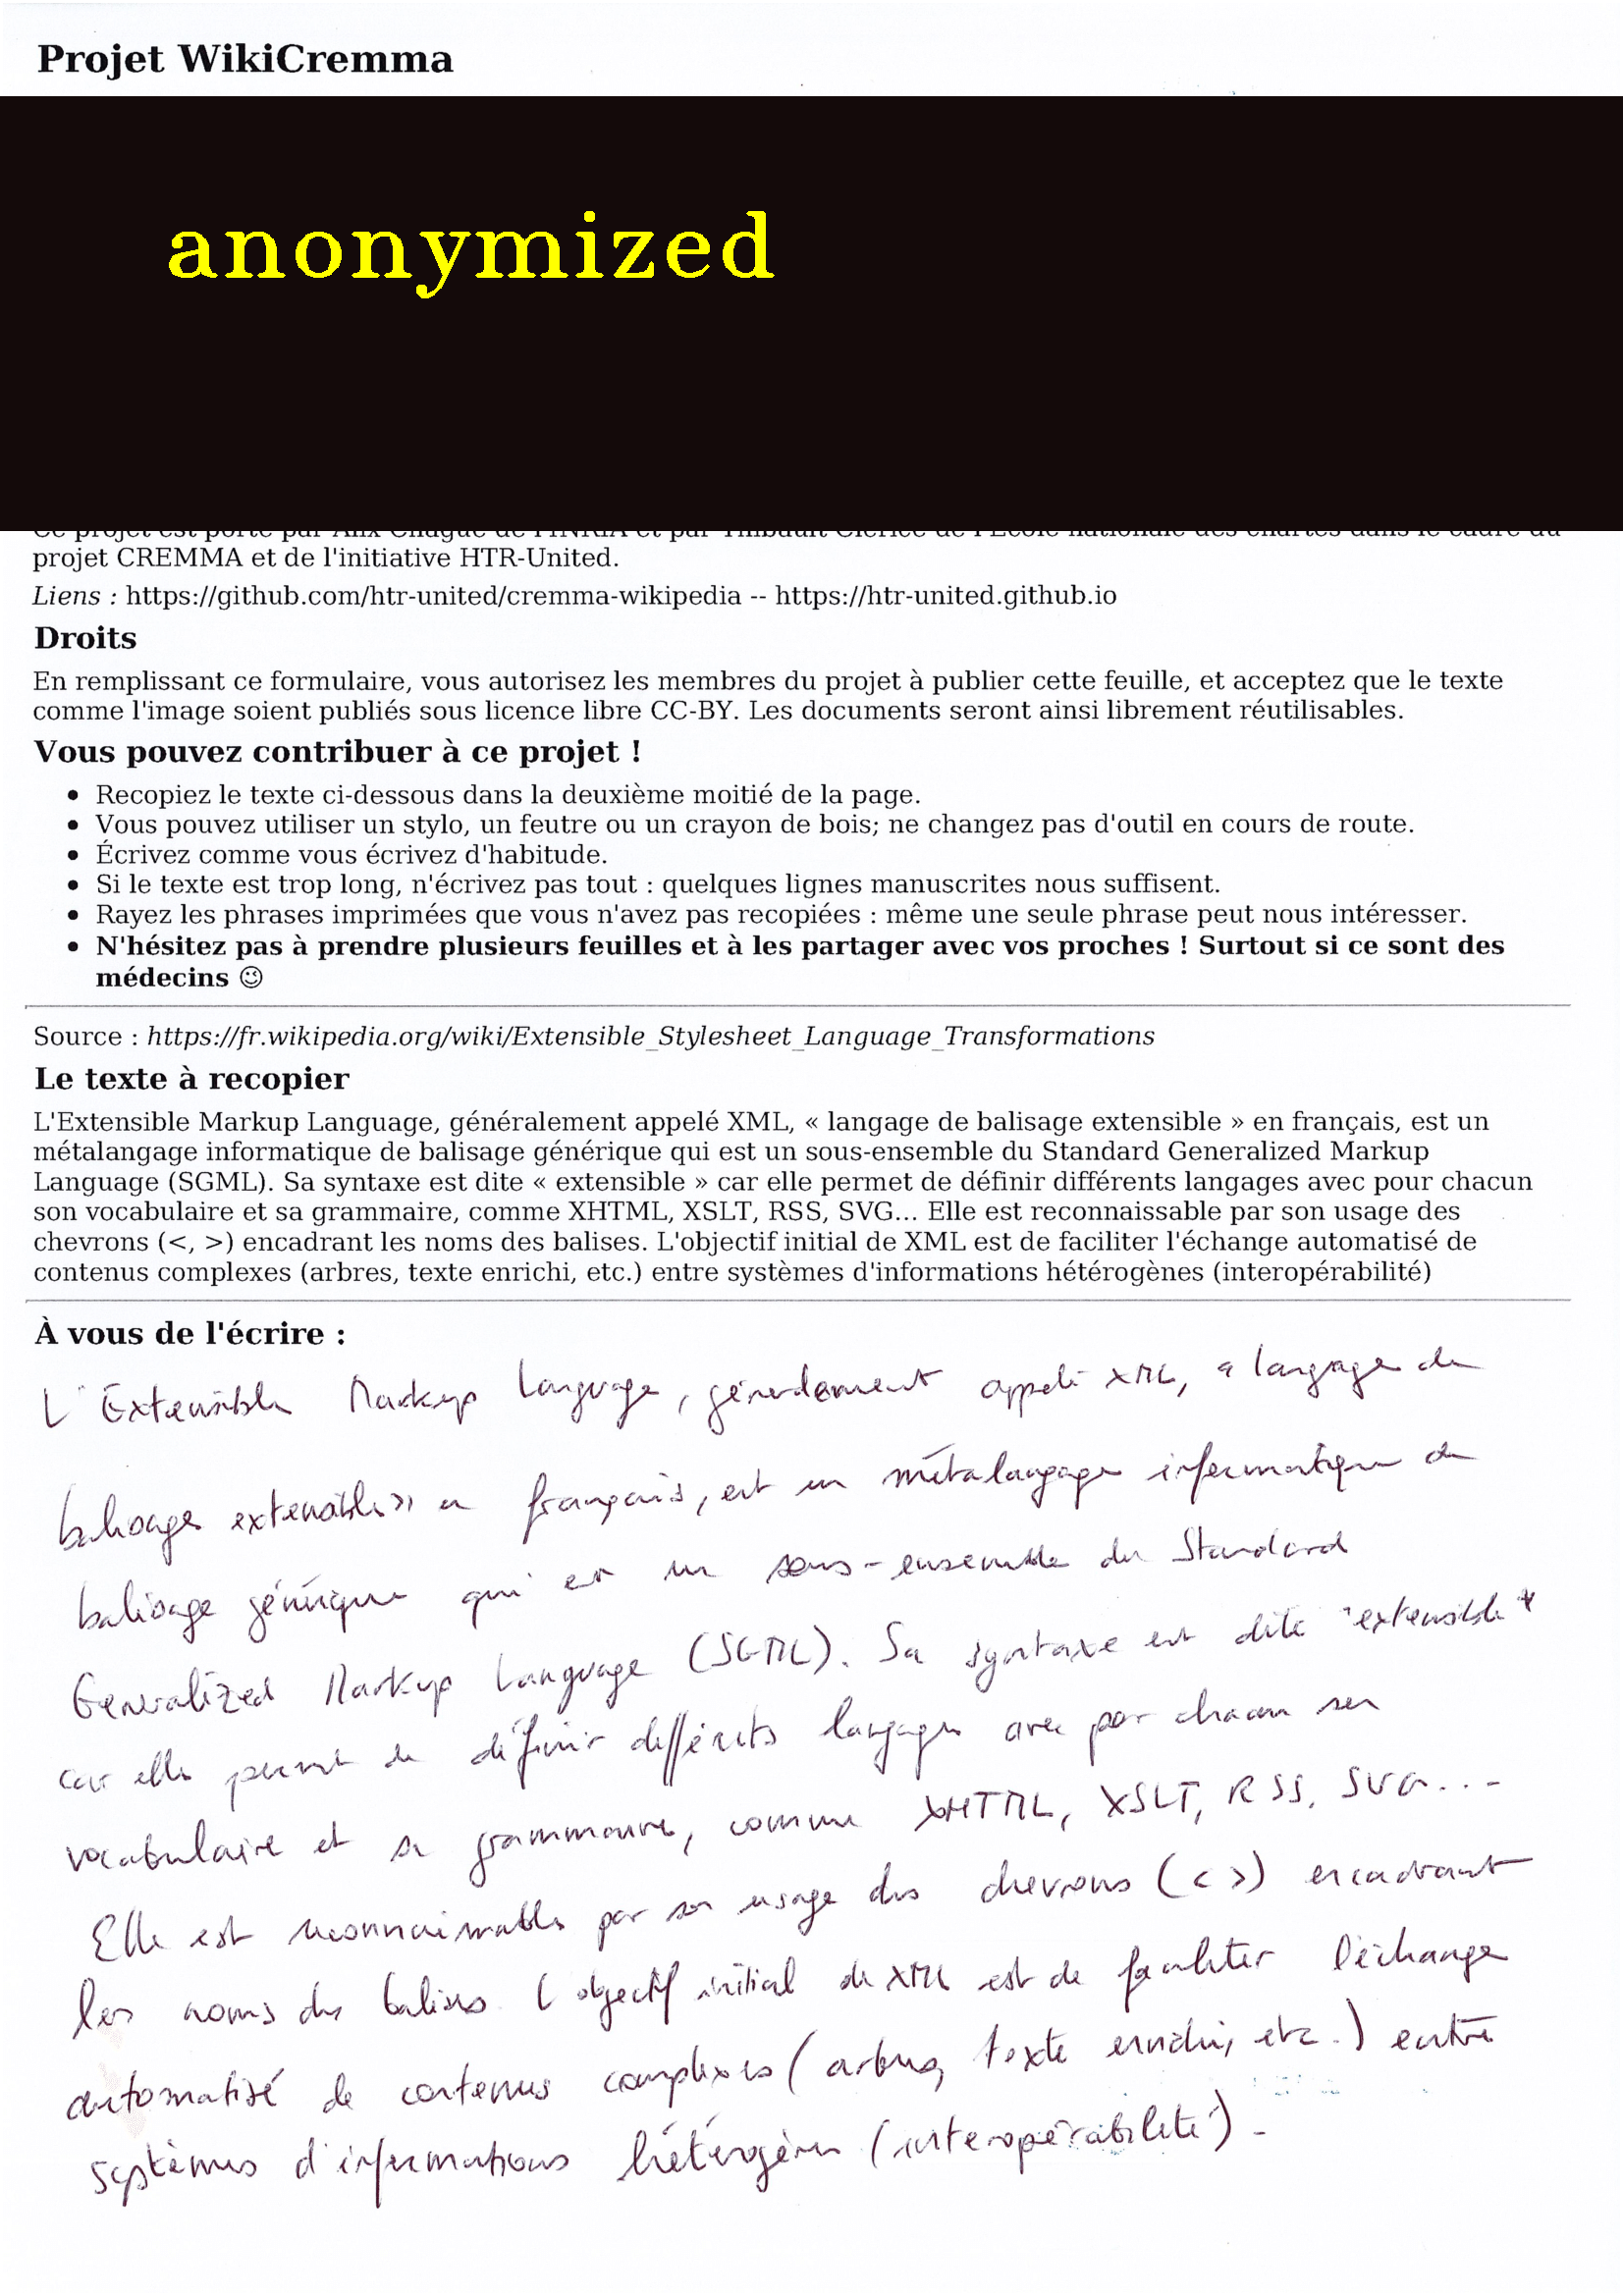 Projet WikiCremma
anonymized
projet CREMMA et de l'initiative HTR-United.
Liens : https://github.com/htr-united/cremma-wikipedia -- https://htr-united.github.io
Droits
En remplissant ce formulaire, vous autorisez les membres du projet à publier cette feuille, et acceptez que le texte
comme l'image soient publiés sous licence libre CC-BY. Les documents seront ainsi librement réutilisables.
Vous pouvez contribuer à ce projet !
• Recopiez le texte ci-dessous dans la deuxième moitié de la page.
• Vous pouvez utiliser un stylo, un feutre ou un crayon de bois; ne changez pas d'outil en cours de route.
• Écrivez comme vous écrivez d'habitude.
• Si le texte est trop long, n'écrivez pas tout : quelques lignes manuscrites nous suffisent.
• Rayez les phrases imprimées que vous n'avez pas recopiées : même une seule phrase peut nous intéresser.
• N'hésitez pas à prendre plusieurs feuilles et à les partager avec vos proches ! Surtout si ce sont des
médecins 😉
Source : https://fr.wikipedia.org/wiki/Extensible_Stylesheet_Language_Transformations
Le texte à recopier
L'Extensible Markup Language, généralement appelé XML, « langage de balisage extensible » en français, est un
métalangage informatique de balisage générique qui est un sous-ensemble du Standard Generalized Markup
Language (SGML). Sa syntaxe est dite « extensible » car elle permet de définir différents langages avec pour chacun
son vocabulaire et sa grammaire, comme XHTML, XSLT, RSS, SVG... Elle est reconnaissable par son usage des
chevrons (<, >) encadrant les noms des balises. L'objectif initial de XML est de faciliter l'échange automatisé de
contenus complexes (arbres, texte enrichi, etc.) entre systèmes d'informations hétérogènes (interopérabilité)
À vous de l'écrire :
L'Extensible Markup Language, généralement appelé XML, « langage de
balisage extensible » en français, est un métalangage informatique de
balisage générique qui est un sous-ensemble du Standard
Generalized Markup Language (SGML). Sa syntaxe est dite "extensible"
car elle permet de définir différents langages avec pour chacun son
vocabulaire et sa grammaire, comme XHTML, XSLT, RSS, SVG...
Elle est reconnaissable par son usage des chevrons (< >) encadrant
les noms des balises. L'objectif initial de XML est de faciliter l'échange
automatisé de contenus complexes (arbres, texte enrichi, etc.) entre
systèmes d'informations hétérogènes (interopérabilité).